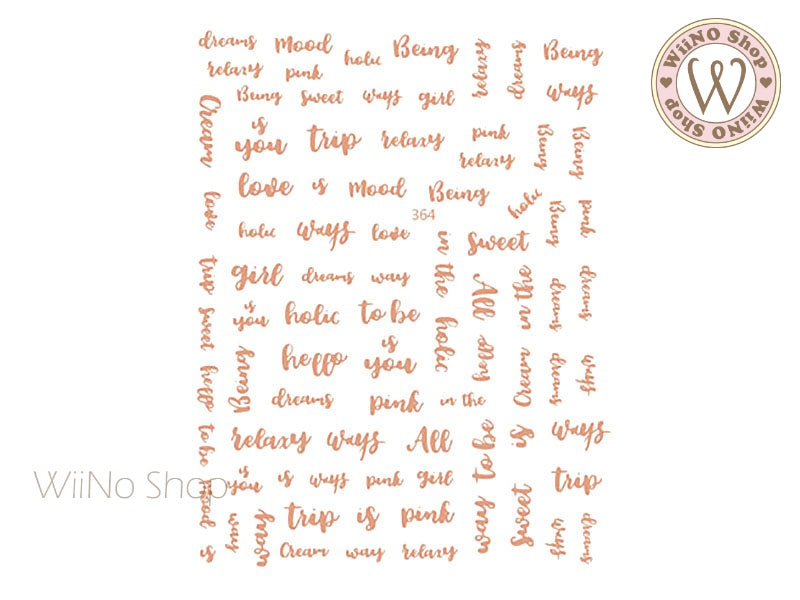 dreams Mood holic Being relaxy dreams Being
relaxy pink
Being sweet ways girl ways
Cream is you trip relaxy pink relaxy Being Being
love is Mood Being
love holic ways love 364 in the sweet holic Being pink
trip girl dreams way All in the dreams dreams
sweet is you holic to be holic
hello Being hello is you hello Cream dreams ways
dreams pink in the
to be relaxy ways All way to be is ways
is you is ways pink girl trip
mood ways way trip is pink sweet ways dreams
is Cream way relaxy
WiiNO Shop
W
WiiNO Shop
WiiNo Shop